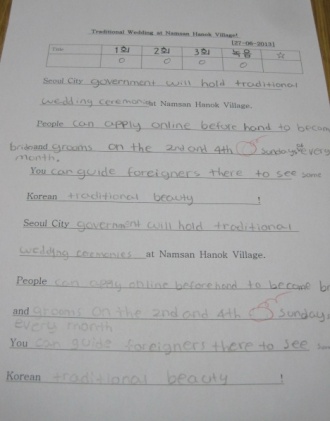 Traditional Wedding at Namsan Hanok Village!
[27-08-2013]
1회 2회 3회 녹음 ☆
O O O O
Seoul City government will hold traditional
wedding ceremonies Namsan Hanok Village.
People can apply online before hand to become
and grooms on the 2nd and 4th Sundays every
month.
You can guide foreigners there to see some
Korean traditional beauty !
Seoul City government will hold traditional
wedding ceremonies at Namsan Hanok Village.
People can apply online beforehand to become br
and grooms on the 2nd and 4th Sunday
every month
You can guide foreigners there to see
Korean traditional beauty !